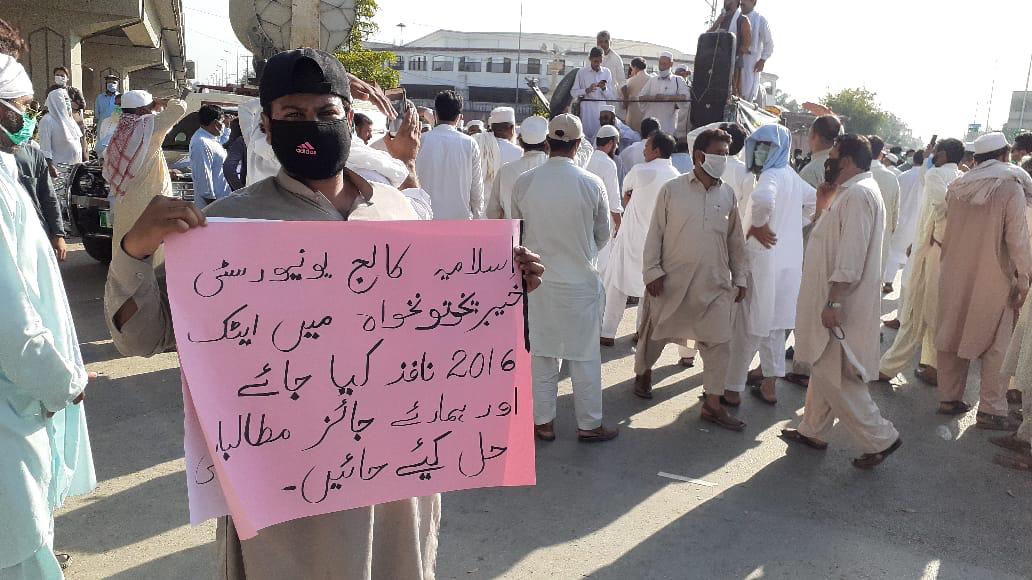 adidas
اسلامیہ کالج یونیورسٹی
خیبر پختونخواہ میں ایٹک
2016 نافذ کیا جائے
اور ہمارے جائز مطالبات
حل کیئے جائیں۔